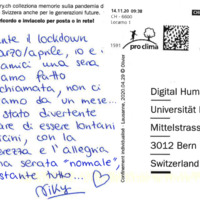 ry.ch colleziona memorie sulla pandemia d
Svizzera anche per le generazioni future.
focento o inviacelo per posta o in rete!
nte il lockdown
arzo/aprile, io e
amici una sera
amo fatto
chiamata, non ci
amo da un mese...
stato divertente
are di essere lontani
cini, con la
rezza e l'allegria
na serata "normale",
stante tutto...
Viky
14.11.20 09:38
CH - 6600
Locarno 1
pro clima
Confinement individualisé - Lausanne, 2020.04.29 © Olivier
Digital Hum
Universität
Mittelstrasse
3012 Bern
Switzerland